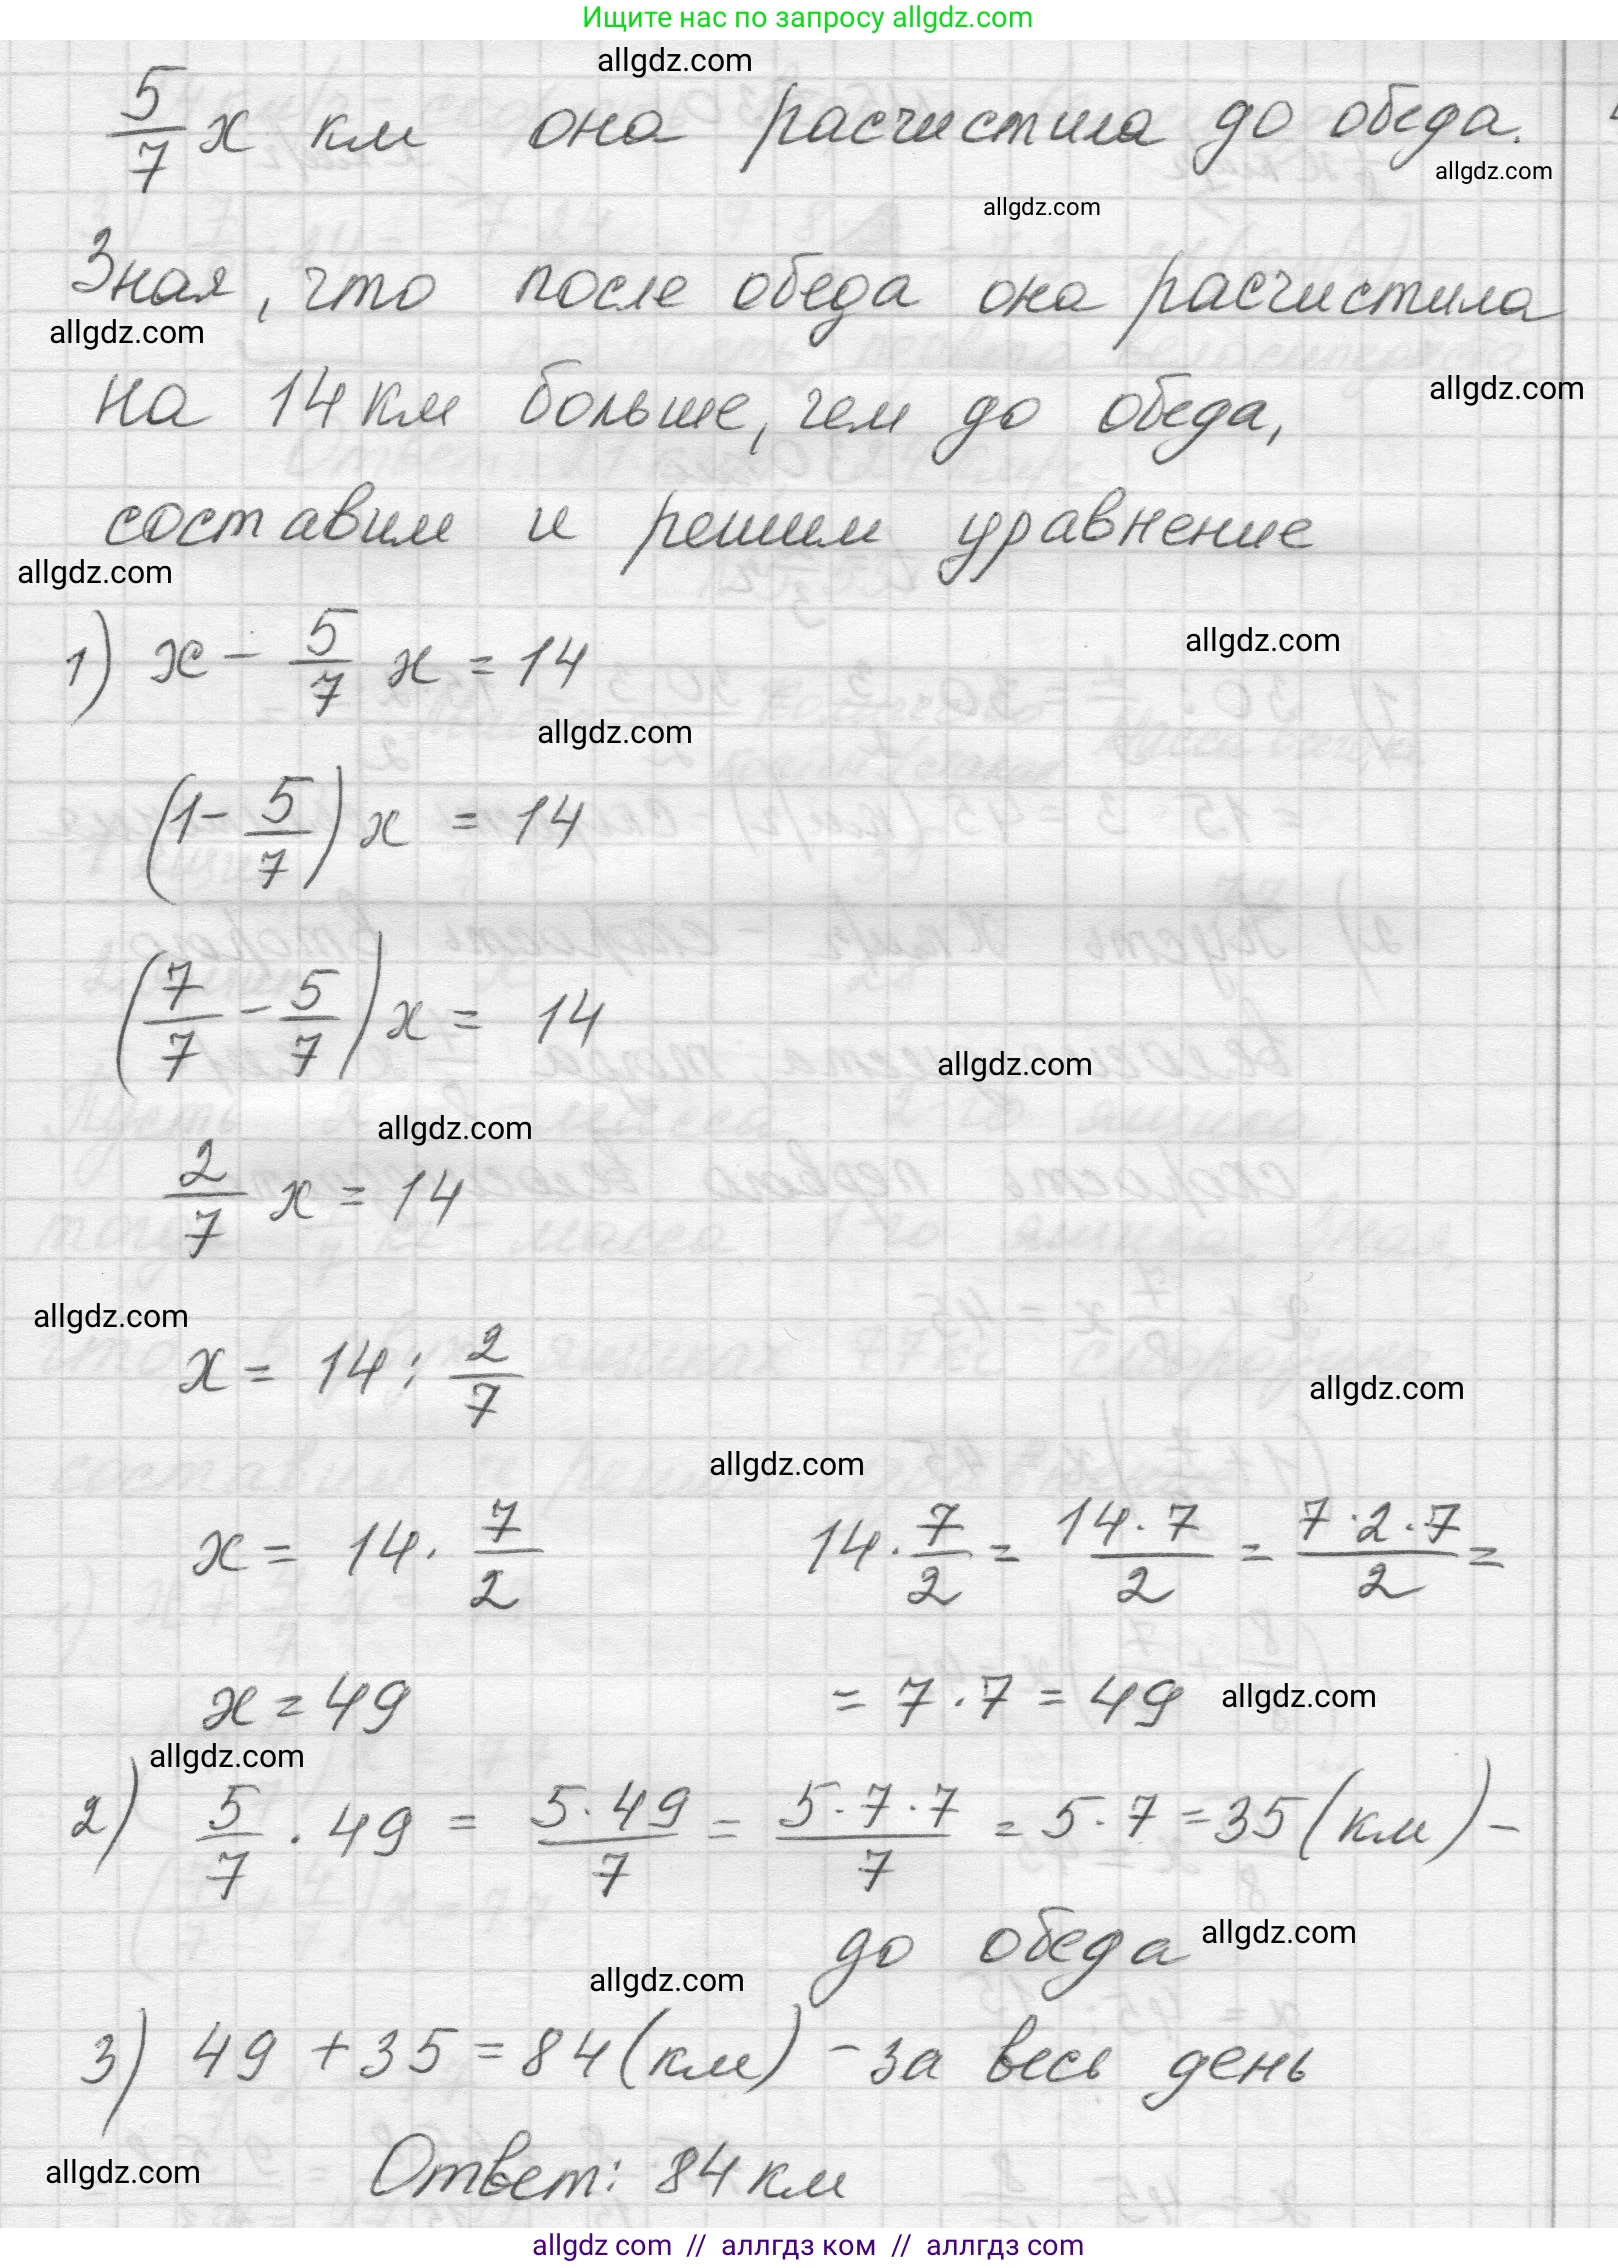 Ищите нас по запросу allgdz.com
allgdz.com
5/7 x км она расчистила до обеда.
allgdz.com
allgdz.com
Зная, что после обеда она расчистила
allgdz.com
на 14 км больше, чем до обеда,
allgdz.com
составим и решим уравнение
allgdz.com
1) x - 5/7 x = 14
allgdz.com
allgdz.com
(1 - 5/7) x = 14
(7/7 - 5/7) x = 14
allgdz.com
allgdz.com
2/7 x = 14
allgdz.com
x = 14 : 2/7
allgdz.com
allgdz.com
x = 14 · 7/2
14 · 7/2 = 14 · 7/2 = 7 · 2 · 7/2 =
x = 49
= 7 · 7 = 49
allgdz.com
allgdz.com
2) 5/7 · 49 = 5 · 49/7 = 5 · 7 · 7/7 = 5 · 7 = 35 (км) -
до обеда
allgdz.com
allgdz.com
3) 49 + 35 = 84 (км) - за весь день
allgdz.com
Ответ: 84 км
allgdz com // аллгдз ком // аллгдз com